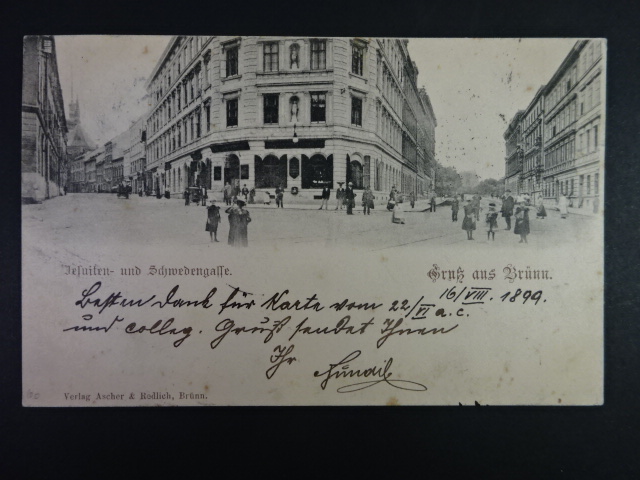 Jesuiten- und Schwedengasse.
Gruß aus Brünn.
16/VIII. 1899.
Besten Dank für Karte vom 22/VI a.c.
und colleg. Gruß sendet Ihnen
Ihr
Verlag Ascher & Redlich, Brünn.